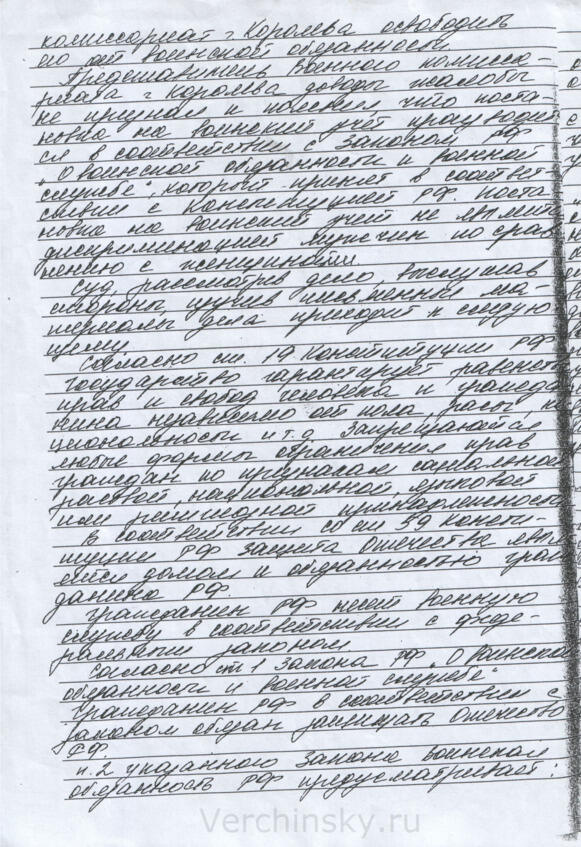 комиссариат г. Королева освободить
его от воинской обязанности.
Представитель Военного комисса-
риата г. Королева доводы жалобы
не признал и пояснил что поста-
новка на воинский учёт производит
ся в соответствии с Законом РФ
„О воинской обязанности и военной
службе", который принят в соответ-
ствии с Конституцией РФ. Поста
новка на воинский учет не является
дискриминацией мужчин по срав
нению с женщинами
Суд, рассмотрев дело, выслушав
стороны изучив письменные ма-
териалы дела приходит к следую
щему
Согласно ст. 19 Конституции РФ
государство гарантирует равенст
прав и свобод человека и гражда
нина независимо от пола, расы, на
циональности и т.д. Запрещаются
любые формы ограничения прав
граждан по признакам социальной
расовой, национальной, языковой
или религиозной принадлежности
В соответствии со ст 59 Консти-
туции РФ защита Отечества явл
ется долгом и обязанностью граж
данина РФ.
Гражданин РФ несет военную
службу в соответствии с феде-
ральным законом
Согласно ст 1 Закона РФ „О воинской
обязанности и военной службе"
Гражданин РФ в соответствии с
законом обязан защищать Отечество
РФ
п. 2 указанного Закона воинская
обязанность РФ предусматривает:
Verchinsky.ru